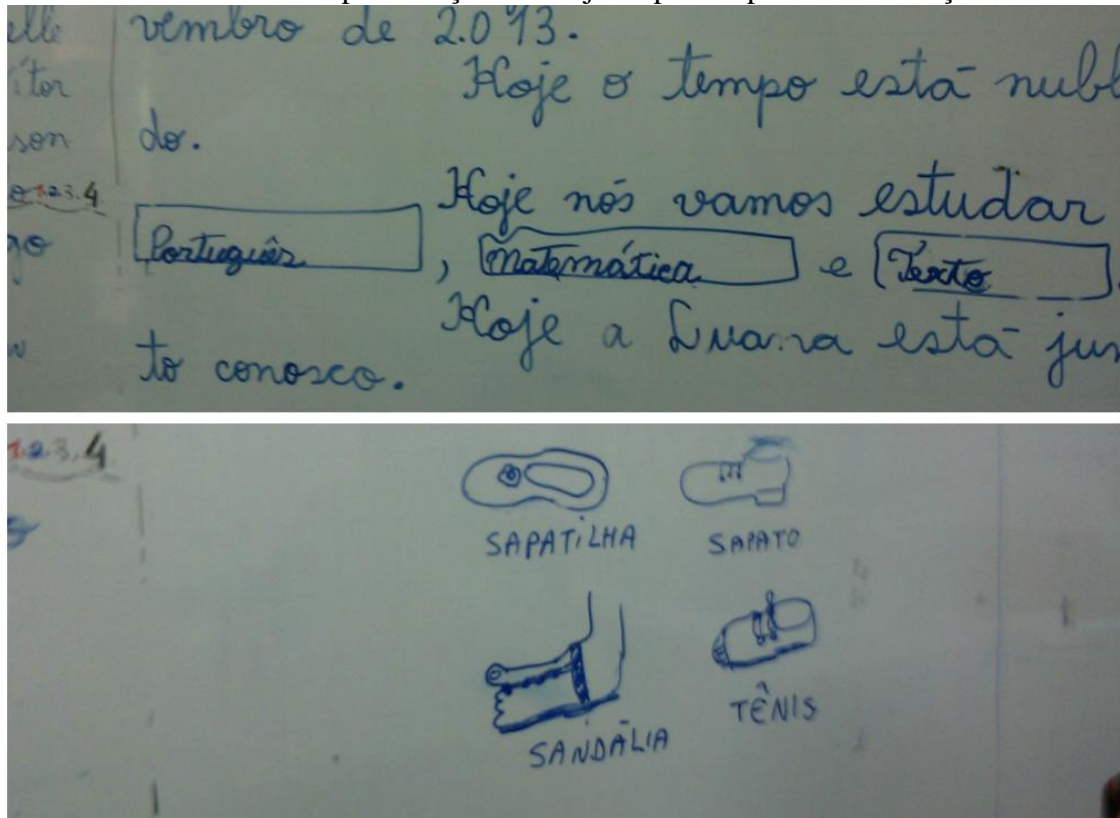 elle vembro de 2.013.
ítor Hoje o tempo está nubl
son do.
1.2.3.4 Hoje nós vamos estudar
go Português, Matemática e Texto.
Hoje a Luana está jun
to conosco.
1.2.3.4
SAPATILHA SAPATO
SANDÁLIA TÊNIS